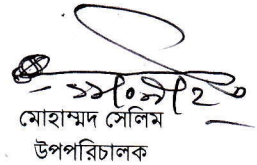 মোহাম্মদ সেলিম
উপপরিচালক